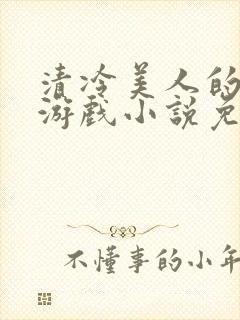 清冷美人的
游戏小说免
不懂事的小年